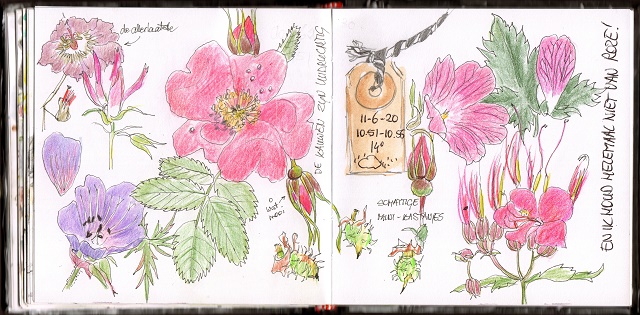 de allerlaatste
DE RANDEN ZIJN
o
wat
mooi
11-6-20
10.51-10.55
14°
SCHATTIGE
MINI-KASTANJES
EN IK HOUD HELEMAAL NIET VAN ROZE!